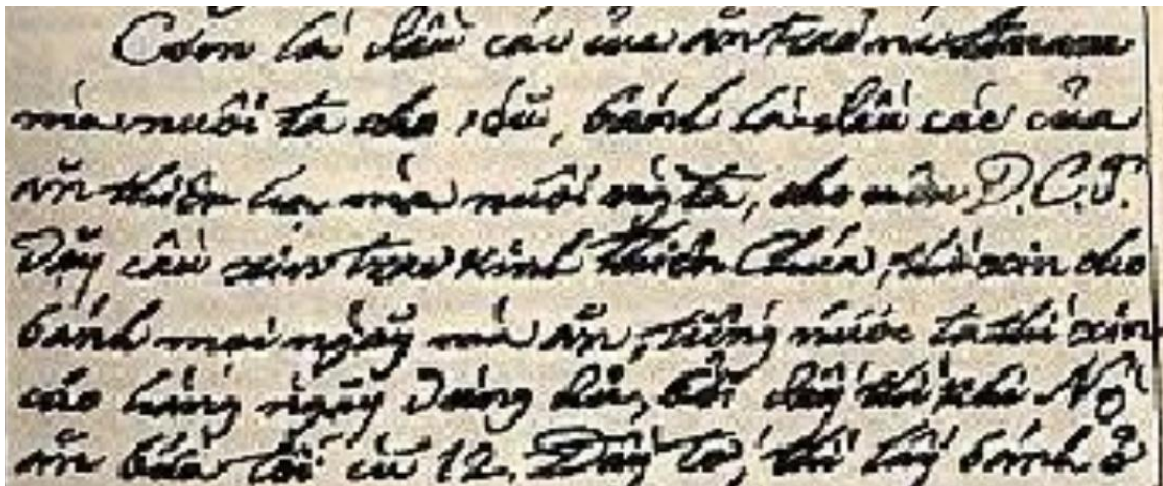 Cơm là dầu các của ăn trao
mà nuôi ta cho sóũ, bánh là dầu các của
ăn thiên hạ mà nuôi ngta, cho nên D.C.J.
Dạy cầu xin trao kinh thiên Chúa, thì xin cho
bánh mọi ngày mà ăn, tiếng nước ta thì xin
cho hàng ngày dùng đủ, bởi đấy thì khi Ng
ăn bữa tối cũ 12. Đầy tớ, thì lấy bánh ở